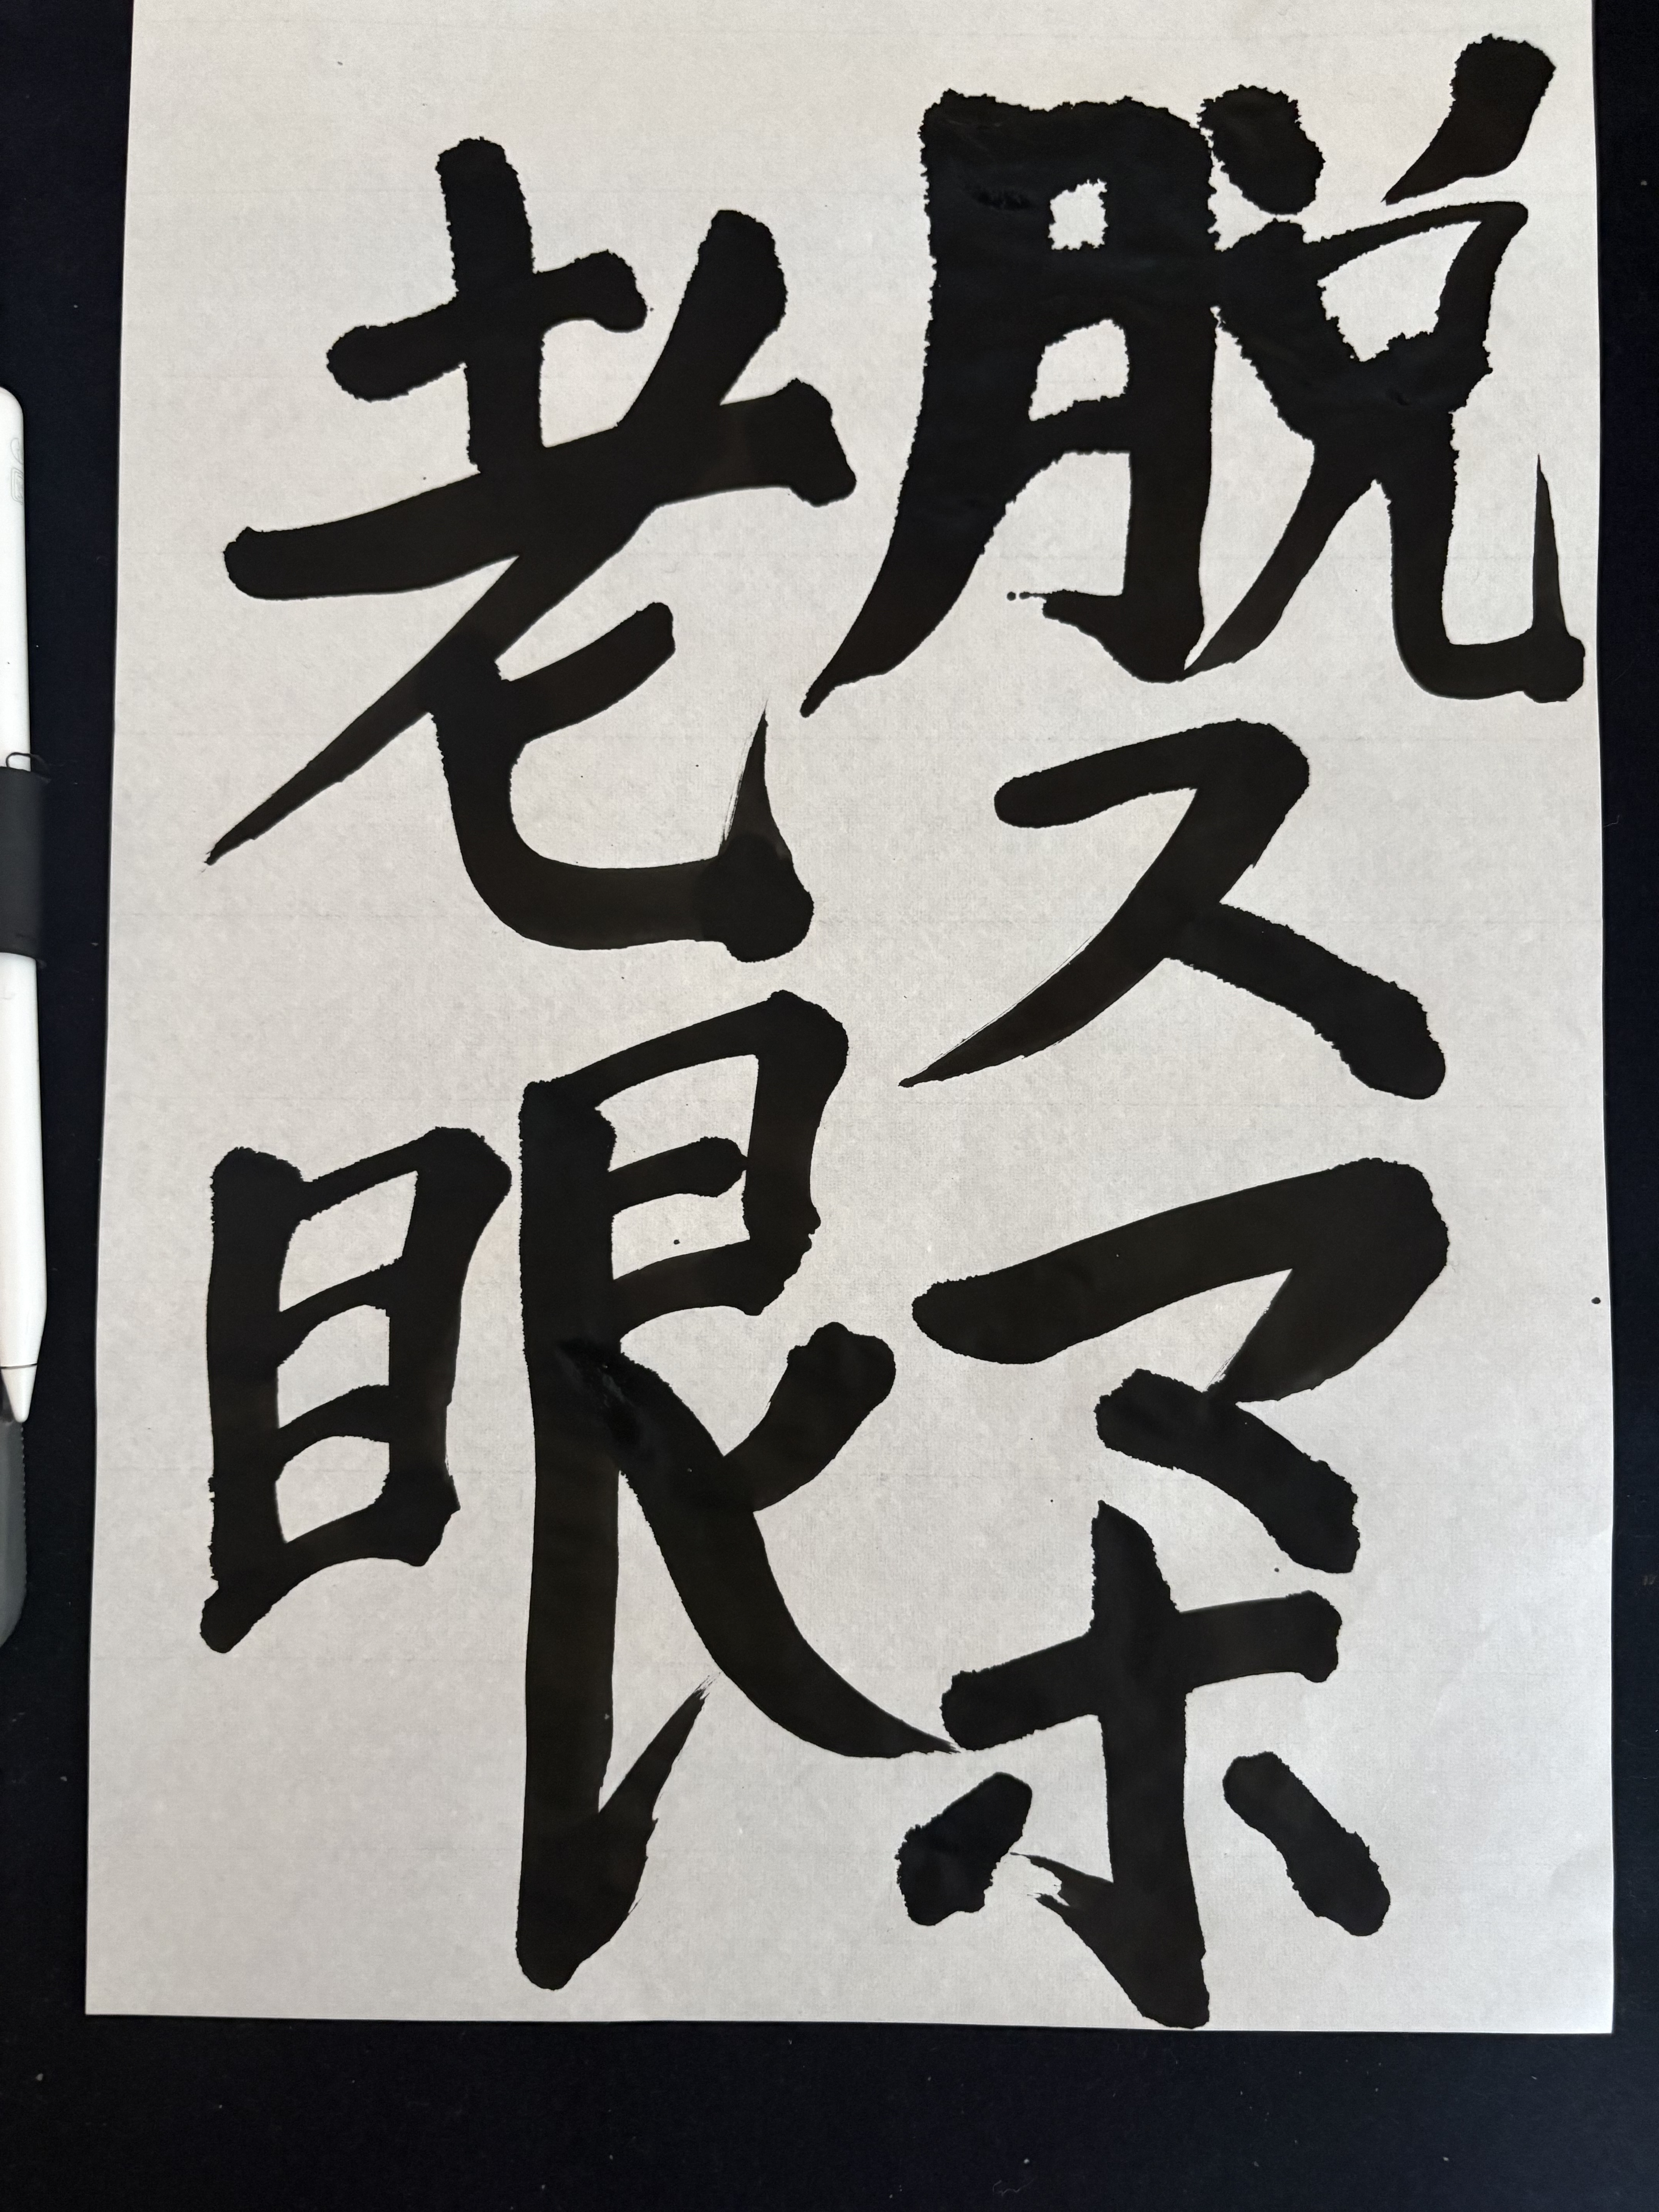 脱スマホ
老眼